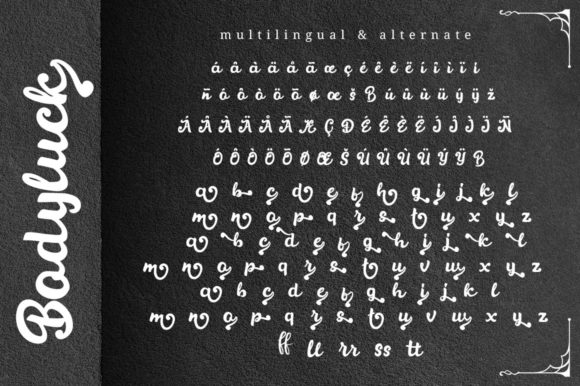 Bodyluck
multilingual & alternate
á â à ä å ã æ ç é ê è ë í î ì ï i
ñ ó ô ò ö õ ø œ š B ú û ù ü ý ÿ ž
Á Â À Ä Å Ã Æ Ç Ð É Ê È Ë Í Î Ì Ï Ñ
Ó Ô Ò Ö Õ Ø Œ Š Ú Û Ù Ü Ý Ÿ B
a b c d e f g h g i j k l
m n o p q r s t u y x y z
a b c d e f g h i j k l
m n o p q r s t u v w y x y z
a b c d e f g h i j k l
m n o p q r s t u v w y x y z
ff ll rr ss tt